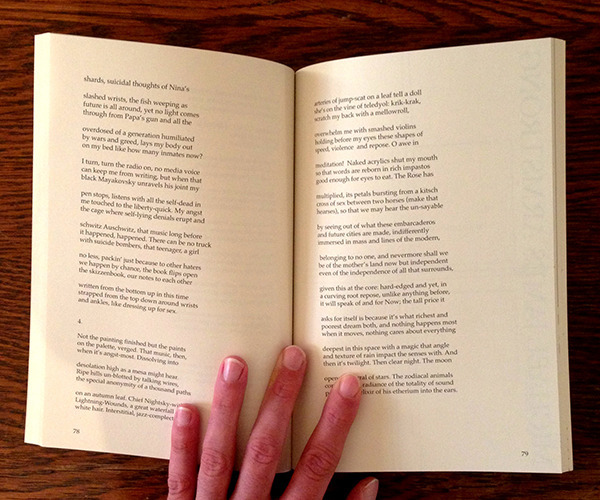 shards, suicidal thoughts of Nina's
slashed wrists, the fish weeping as
future is all around, yet no light comes
through from Papa's gun and all the
overdosed of a generation humiliated
by wars and greed, lays my body out
on my bed like how many inmates now?
I turn, turn the radio on, no media voice
can keep me from writing, but when that
black Mayakovsky unravels his joint my
pen stops, listens with all the self-dead in
me touched to the liberty-quick. My angst
the cage where self-lying denials erupt and
schwitz Auschwitz, that music long before
it happened, happened. There can be no truck
with suicide bombers, that teenager, a girl
no less, packin' just because to other haters
we happen by chance, the book flips open
the skizzenbook, our notes to each other
written from the bottom up in this time
strapped from the top down around wrists
and ankles, like dressing up for sex.
4.
Not the painting finished but the paints
on the palette, verged. That music, then,
when it's angst-most. Dissolving into
desolation high as a mesa might hear
Ripe hills un-blotted by talking wires,
the special anonymity of a thousand paths
on an autumn leaf. Chief Nightsky-wi
Lightning-Wounds, a great waterfall
white hair. Interstitial, jazz-complec
78
arteries of jump-scat on a leaf tell a doll
she's on the vine of teledyol: krik-krak,
scratch my back with a mellowroll,
overwhelm me with smashed violins
holding before my eyes these shapes of
speed, violence and repose. O awe in
meditation! Naked acrylics shut my mouth
so that words are reborn in rich impastos
good enough for eyes to eat. The Rose has
multiplied, its petals bursting from a kitsch
cross of sex between two horses (make that
hearses), so that we may hear the un-sayable
by seeing out of what these embarcaderos
and future cities are made, indifferently
immersed in mass and lines of the modern,
belonging to no one, and nevermore shall we
be of the mother's land now but independent
even of the independence of all that surrounds,
given this at the core: hard-edged and yet, in
a curving root repose, unlike anything before,
it will speak of and for Now; the tall price it
asks for itself is because it's what richest and
poorest dream both, and nothing happens most
when it moves, nothing cares about everything
deepest in this space with a magic that angle
and texture of rain impact the senses with. And
then it's twilight. Then clear night. The moon
open of stars. The zodiacal animals
radiance of the totality of sound
elixir of his etherium into the ears.
79